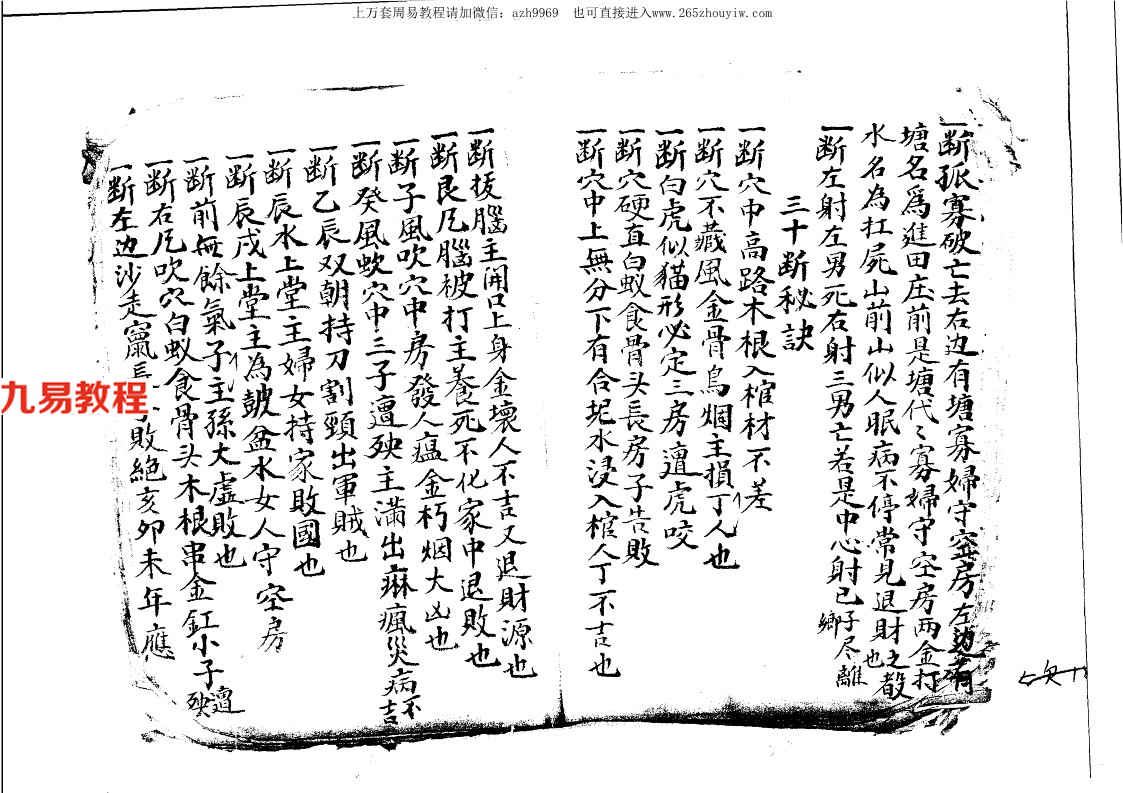 上万套周易教程请加微信：azh9969 也可直接进入www.265zhouyiw.com
一断孤寡破亡去右边有塘寡婦守空房左边有
塘名爲進田庄前是塘代〻寡婦守空房两金打
水名為扛屍山前山似人眠病不停常見退財之殺也
一断左射左男死右射三男亡若是中心射己子尽離鄉
三十断秘訣
一断穴中高路木根入棺材不差
一断穴不藏風金骨鳥烟主損丁人也
一断白虎似猫形必定三房遭虎咬
一断穴硬直白蚁食骨头長房子告敗
一断穴中上無分下有合坭水浸入棺人丁不吉也
一断拔腦主開口上身金壞人不吉又退財源也
一断艮凹腦被打主養死不化家中退敗也
一断子風吹穴中房發人瘟金朽烟大凶也
一断癸風吹穴中三子遭殃主满出痳瘋災病不吉
一断乙辰双朝持刀割頸出軍賊也
一断辰水上堂主婦女持家敗國也
一断辰戌上堂主為皷盆水女人守空房
一断前無餘氣子主孫大虚敗也
一断右凹吹穴白蚁食骨头木根串金缸小子遭殃
一断左边沙走竄長敗絕亥卯未年應
九易教程